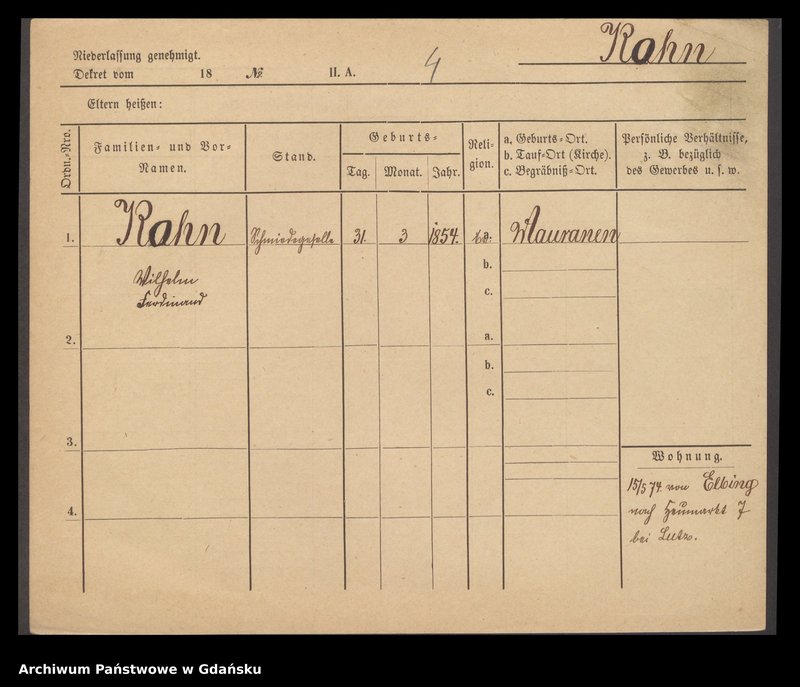 Rahn
Niederlassung genehmigt.
Dekret vom 18 № II. A. 4
Eltern heißen:
Ordn.-Nro.
Familien- und Vor-
Namen.
Stand.
Geburts-
Tag. Monat. Jahr.
Reli-
gion.
a. Geburts-Ort.
b. Tauf-Ort (Kirche).
c. Begräbniß-Ort.
Persönliche Verhältnisse,
z. B. bezüglich
des Gewerbes u. s. w.
1. Rahn Schmiedegeselle 31. 3 1854. a.
Wilhelm
Ferdinand
b.
c.
2. a.
b.
c.
3.
4.
Wohnung.
15/5 74 von Elbing
nach Heumarkt 7
bei